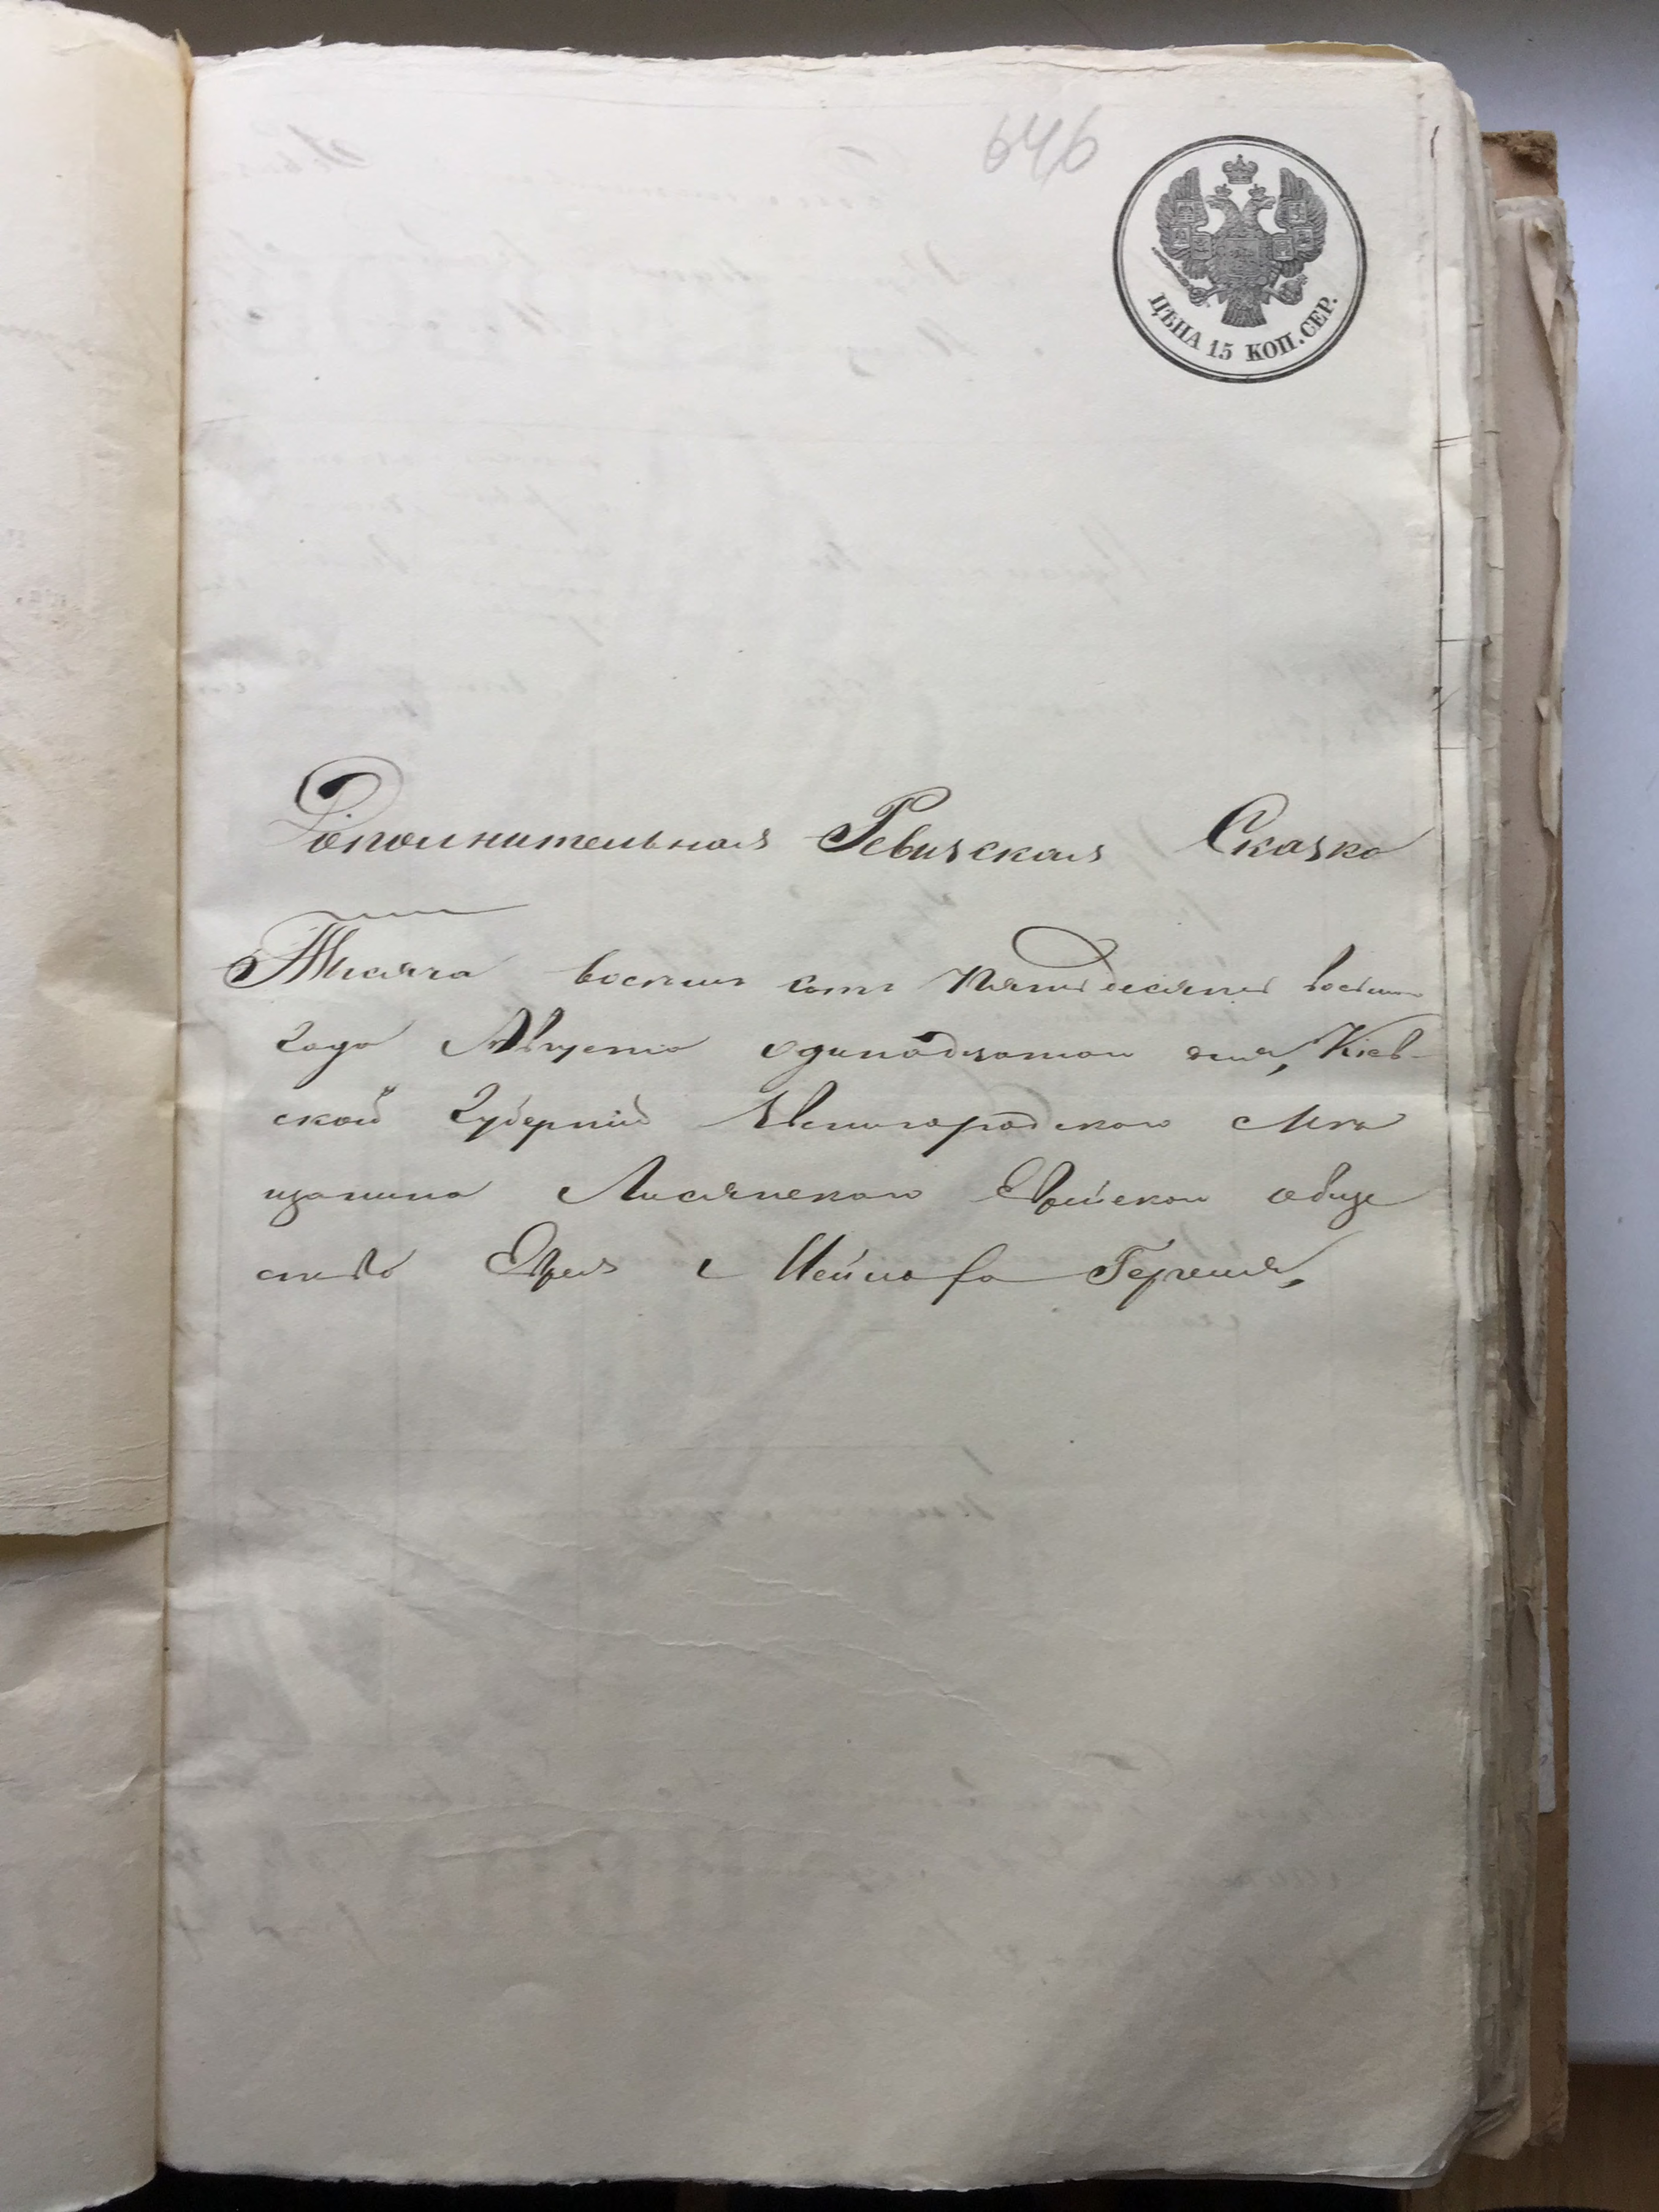 646
ЦѢНА 15 КОП. СЕР.
Дополнительная Ревизская Сказка
Тысяча восемь сотъ пятьдесятъ восьмо
года Августа одинадцатого дня, Кіев-
ской Губерніи Звенигородского Мѣ
щанина Лисянского Еврейского обще
ства Еврея Гершка